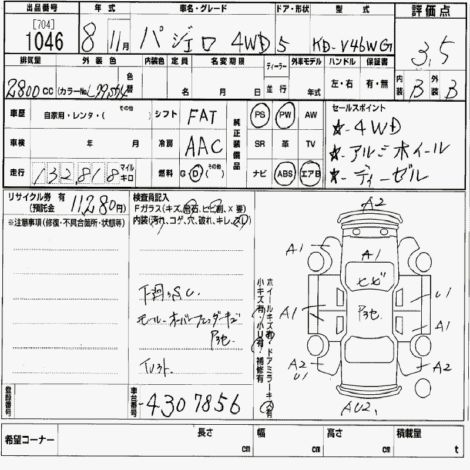 出品番号 年式 車名・グレード ドア・形状 型式 評価点
[704]
1046 8年 11月 パジェロ 4WD 5 KD-V46WG 3,5
排気量 外装色 内装色 定員 名変期限 ディーラー 外車モデル ハンドル 保証書 内装 外装
2800cc (カラーNo. ) 色替 名 月 日 並行 年 左・右 有・無 B B
車歴 自家用・レンタ・(その他) シフト FAT 純正装備品 PS PW AW セールスポイント
☆-4WD
車検 年 月 日 冷房 AAC SR 革 TV
☆-アルミホイール
走行 132818 マイル キロ 燃料 G D (その他) ナビ ABS エアB
☆-ディーゼル
リサイクル券 有 (預託金 11,280円) 検査員記入
※注意事項(修復・不具合箇所・状態等) Fガラス(キズ、飛石、ヒビ割、X要)
内装(汚れ、コゲ、穴、破れ、キレ、ズレ)
下廻りS.C.
モール・オーバーフェンダーキズ
P3色
小キズ有・小U有・補修有
ホイールキズ有・ドアミラーキズ有
A2
A1 A1
ヒビ
A1 P3色 U1 A1
A2 U1 A2
AU2
登録番号 車台番号 -4307856
希望コーナー 長さ cm 幅 cm 高さ cm 積載量 t